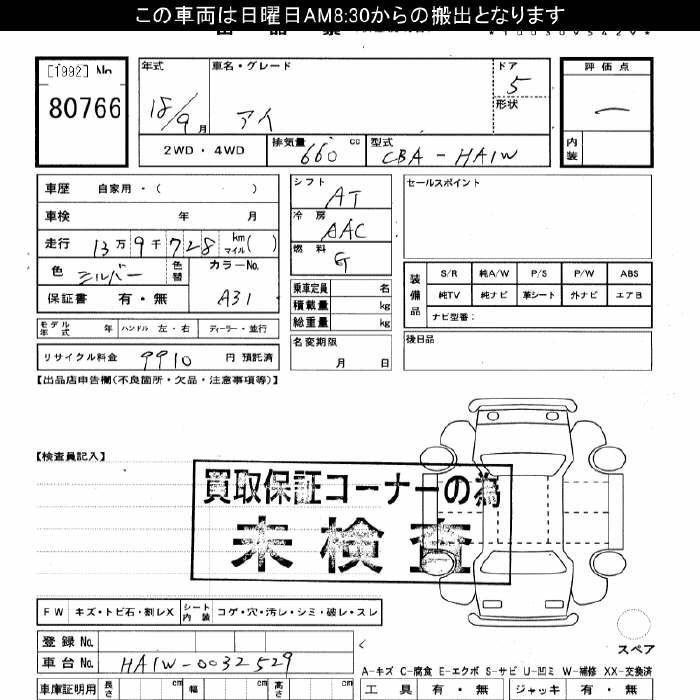 この車両は日曜日AM8:30からの搬出となります
[1992] No.
80766
年式 車名・グレード ドア 評価点
18/9月 アイ 5 ー
形状
2WD・4WD 排気量 660 cc 型式 CBA-HA1W 内装
車歴 自家用・( )
車検 年 月
走行 13万9千728 km マイル( )
色 シルバー 色替 カラーNo.
保証書 有・無 A31
モデル年式 年 ハンドル 左・右 ディーラー・並行
リサイクル料金 9910 円 預託済
シフト AT
冷房 AAC
燃料 G
乗車定員 名
積載量 kg
総重量 kg
名変期限
月 日
セールスポイント
装備品 S/R 純A/W P/S P/W ABS
純TV 純ナビ 革シート 外ナビ エアB
ナビ型番:
後日品
【出品店申告欄(不良箇所・欠品・注意事項等)】
【検査員記入】
買取保証コーナーの為
未検査
FW キズ・トビ石・割レX シート内装 コゲ・穴・汚レ・シミ・破レ・スレ
登録No.
車台No. HA1W-0032529
スペア
A-キズ C-腐食 E-エクボ S-サビ U-凹ミ W-補修 XX-交換済
車庫証明用 長さ cm 幅 cm 高さ cm 工具 有・無 ジャッキ 有・無